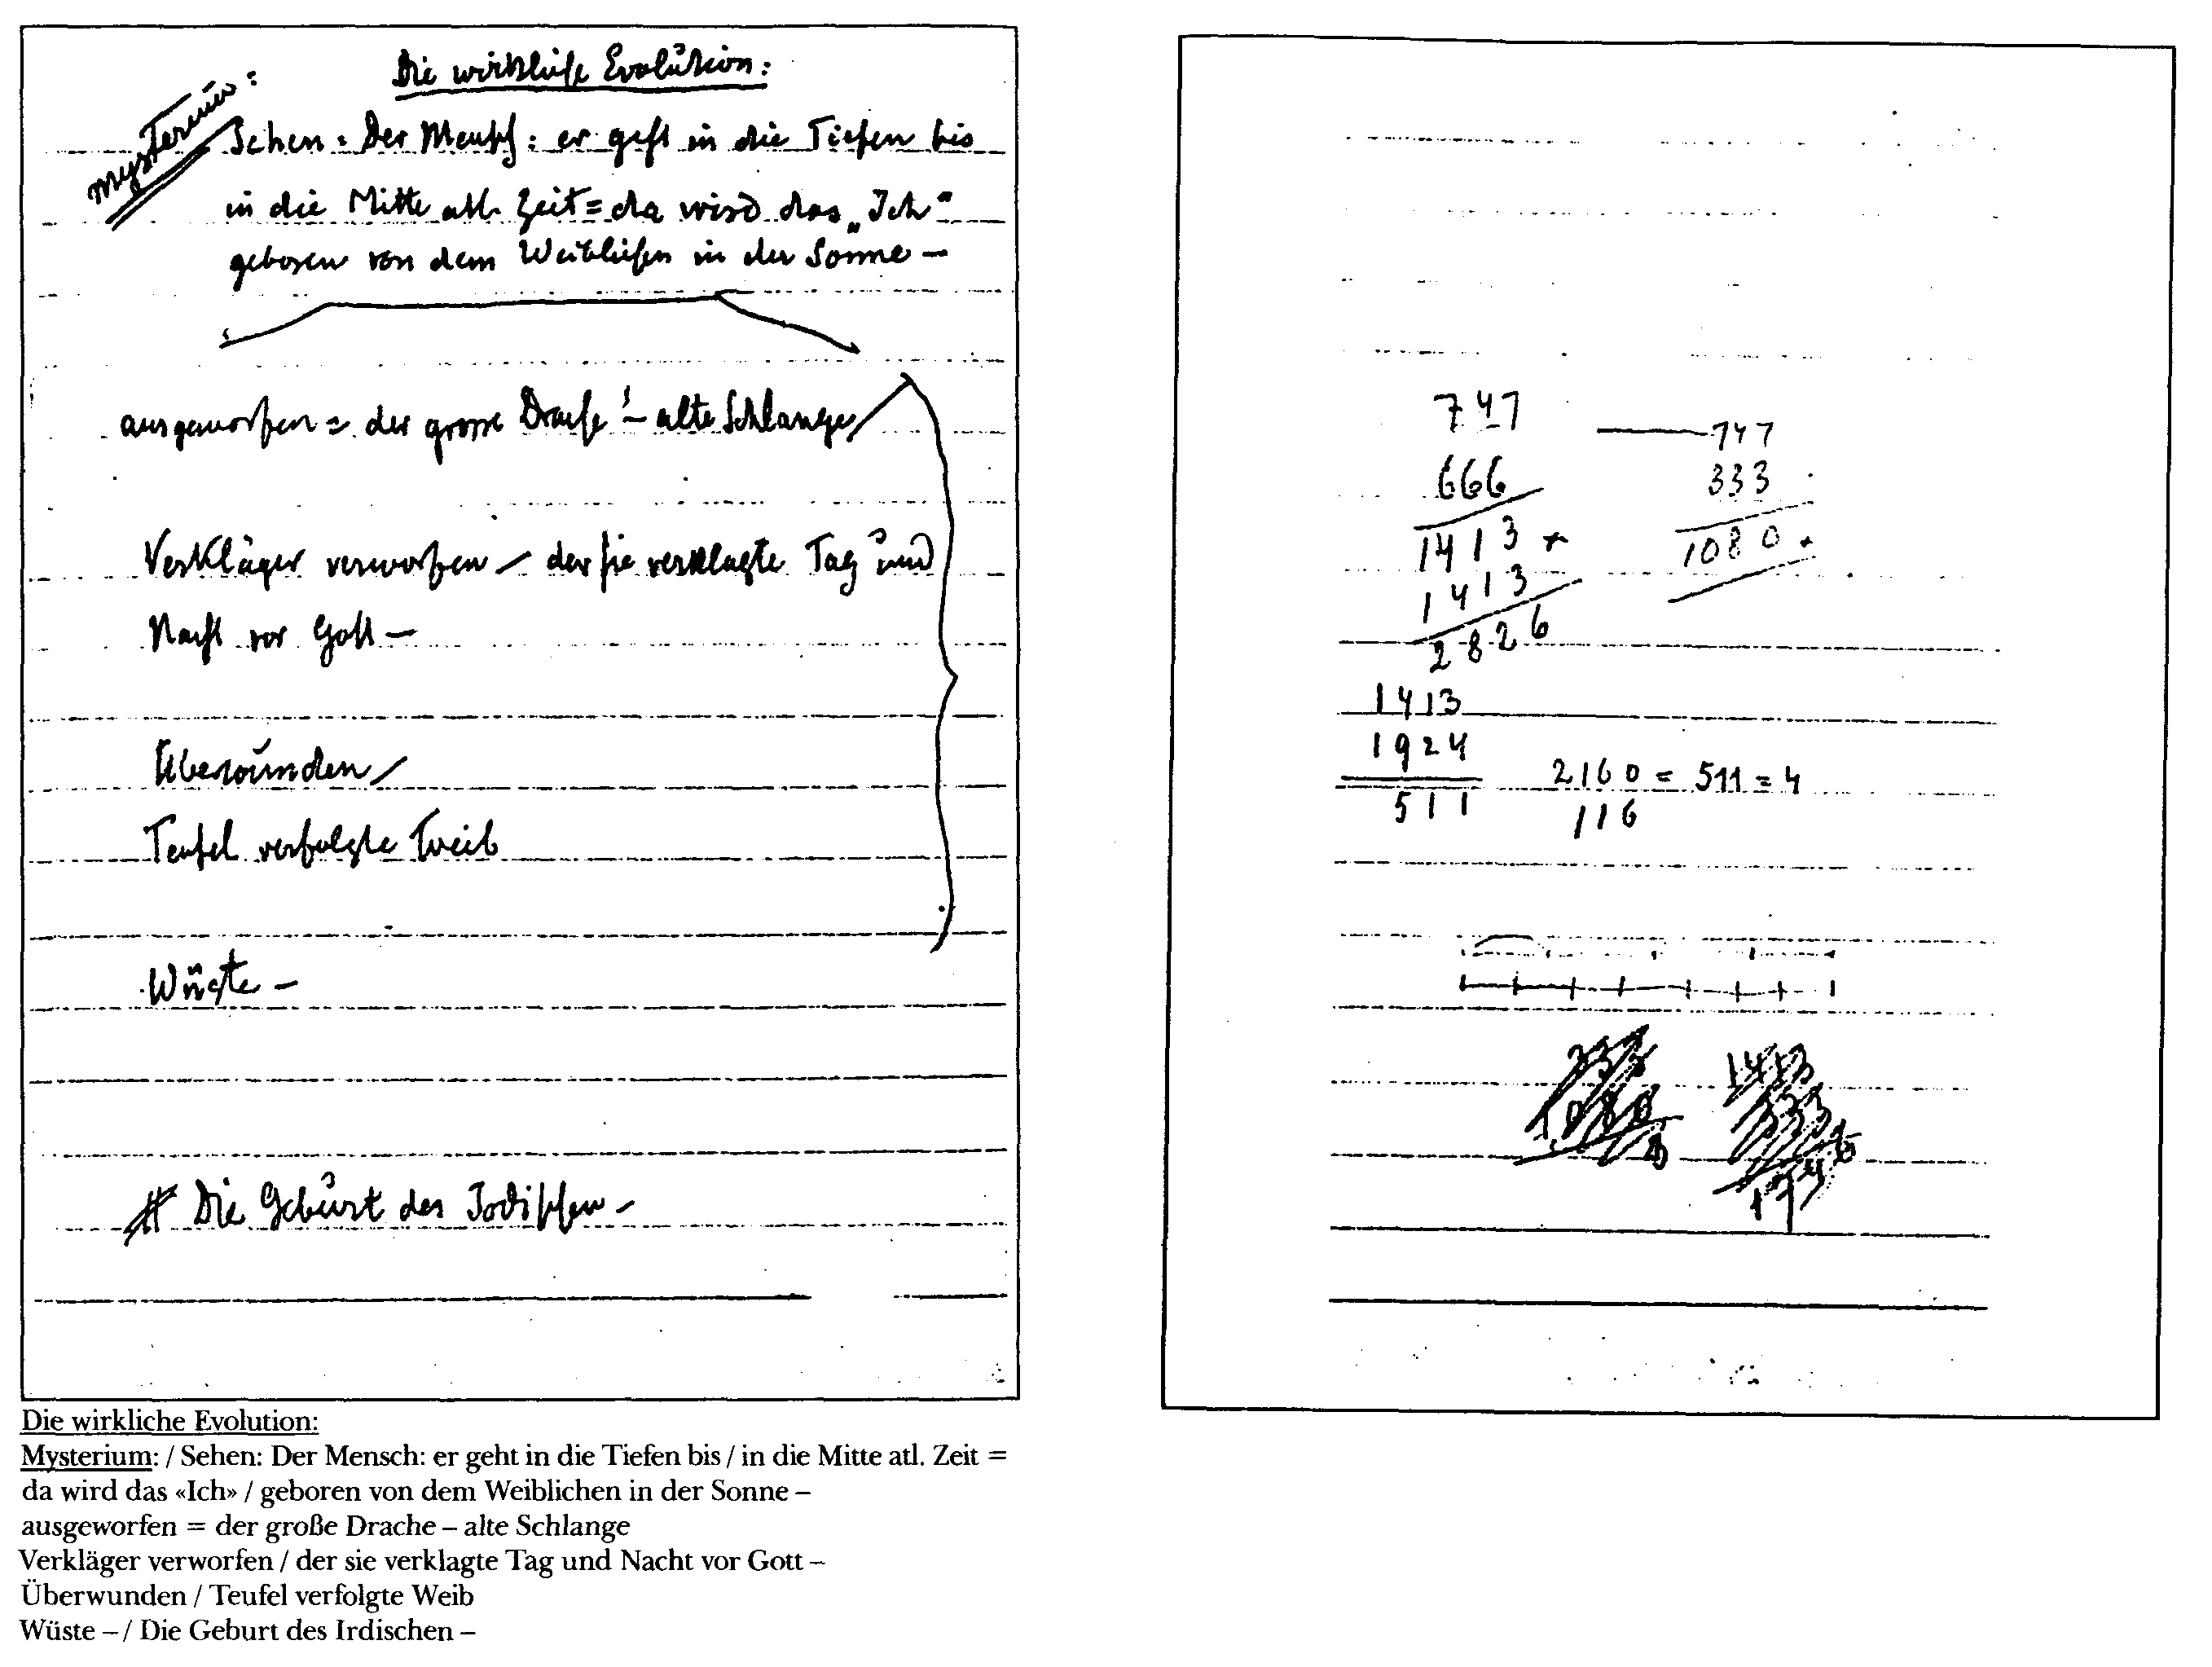 Die wirkliche Evolution:
Mysterium:
Sehen: Der Mensch: er geht in die Tiefen bis
in die Mitte atl. Zeit = da wird das „Ich“
geboren von dem Weiblichen in der Sonne –
ausgeworfen = der grosse Drache – alte Schlange
Verkläger verworfen / der sie verklagte Tag und
Nacht vor Gott –
Überwunden /
Teufel verfolgte Weib
Wüste –
Die Geburt des Irdischen –
747
666
1413
1413
2826
1413
1924
511
747
333
1080
2160 = 511 = 4
116
333
1080
1413
333
Die wirkliche Evolution:
Mysterium: / Sehen: Der Mensch: er geht in die Tiefen bis / in die Mitte atl. Zeit =
da wird das «Ich» / geboren von dem Weiblichen in der Sonne –
ausgeworfen = der große Drache – alte Schlange
Verkläger verworfen / der sie verklagte Tag und Nacht vor Gott –
Überwunden / Teufel verfolgte Weib
Wüste – / Die Geburt des Irdischen –